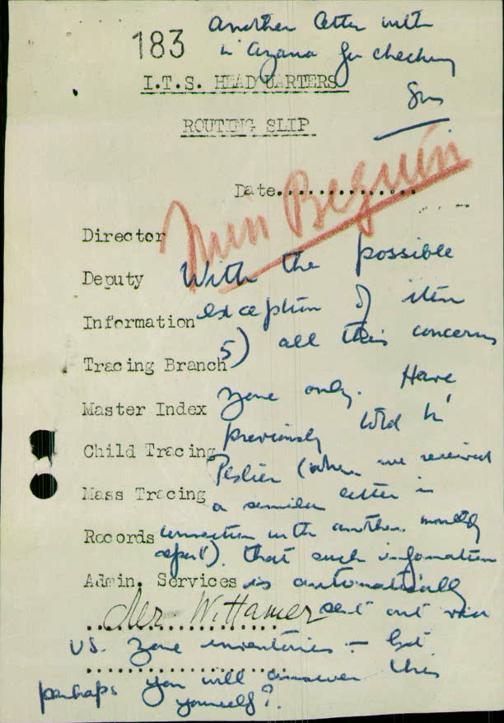 183
Another letter with
for checking
I.T.S. HEADQUARTERS
ROUTING SLIP
Date...............
Miss Beguin
Director
Deputy With the possible
Information exception of item
Tracing Branch 5) all this concerns
Master Index Zone only. Have
Child Tracing previously told
Mass Tracing Peslier (when we received
a similar letter in
Records connection with another monthly
report). that such information
Admin. Services is automatically
Mr. Wittamer sent out
US. Zone inventories – but
perhaps you will answer this
yourself?.